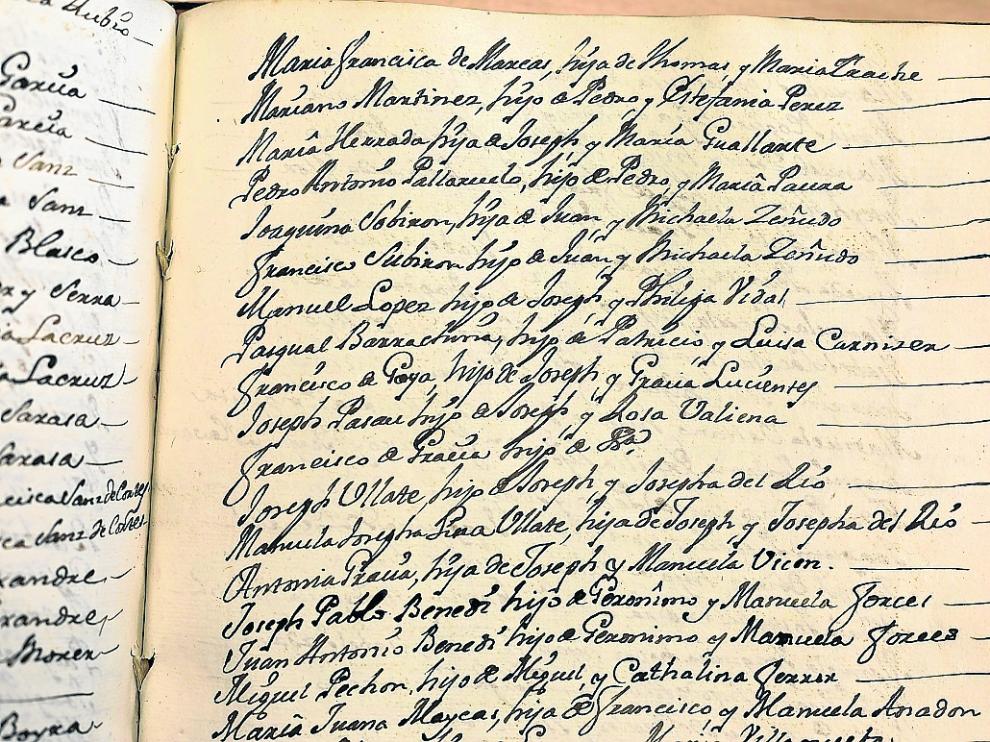 Rubio
Garcia
Garcia
Sanz
Sanz
Blasco
y Serra
Lacruz
Lacruz
Sarasa
Sarasa
Sanz de Cortes
Sanz de Cortes
xandre
xandre
Morer
Boyra
Maria Francisca de Marcas, hija de Thomas, y Maria
Mariano Martinez, hijo de Pedro, y Estefania Perez
Maria Herrada hija de Joseph y Maria Guallarte
Pedro Antonio Pallaruelo, hijo de Pedro, y Maria Paura
Joaquina Sobiron, hija de Juan, y Michaela Zeñudo
Francisco Subiron hijo de Juan, y Michaela Zeñudo
Manuel Lopez hijo de Joseph, y Philipa Vidal
Pasqual Barrachina, hijo de Patricio, y Luisa Carnizer
Francisco de Goya, hijo de Joseph y Gracia Lucientes
Joseph Pasau hijo de Joseph, y Rosa Valiena
Francisco de Gracia hijo de
Joseph Ullate, hijo de Joseph y Josepha del Rio
Manuela Josepha Pina Ullate, hija de Joseph, y Josepha del Rio
Antonia Gracia, hija de Joseph y Manuela Vicen.
Joseph Pablo Benedi hijo de Geronimo y Manuela Forces
Juan Antonio Benedi hijo de Geronimo y Manuela Forces
Miguel Pechon, hijo de Miguel, y Cathalina Ferrer
Maria Juana Maycas, hija de Francisco, y Manuela Anadon
Maria